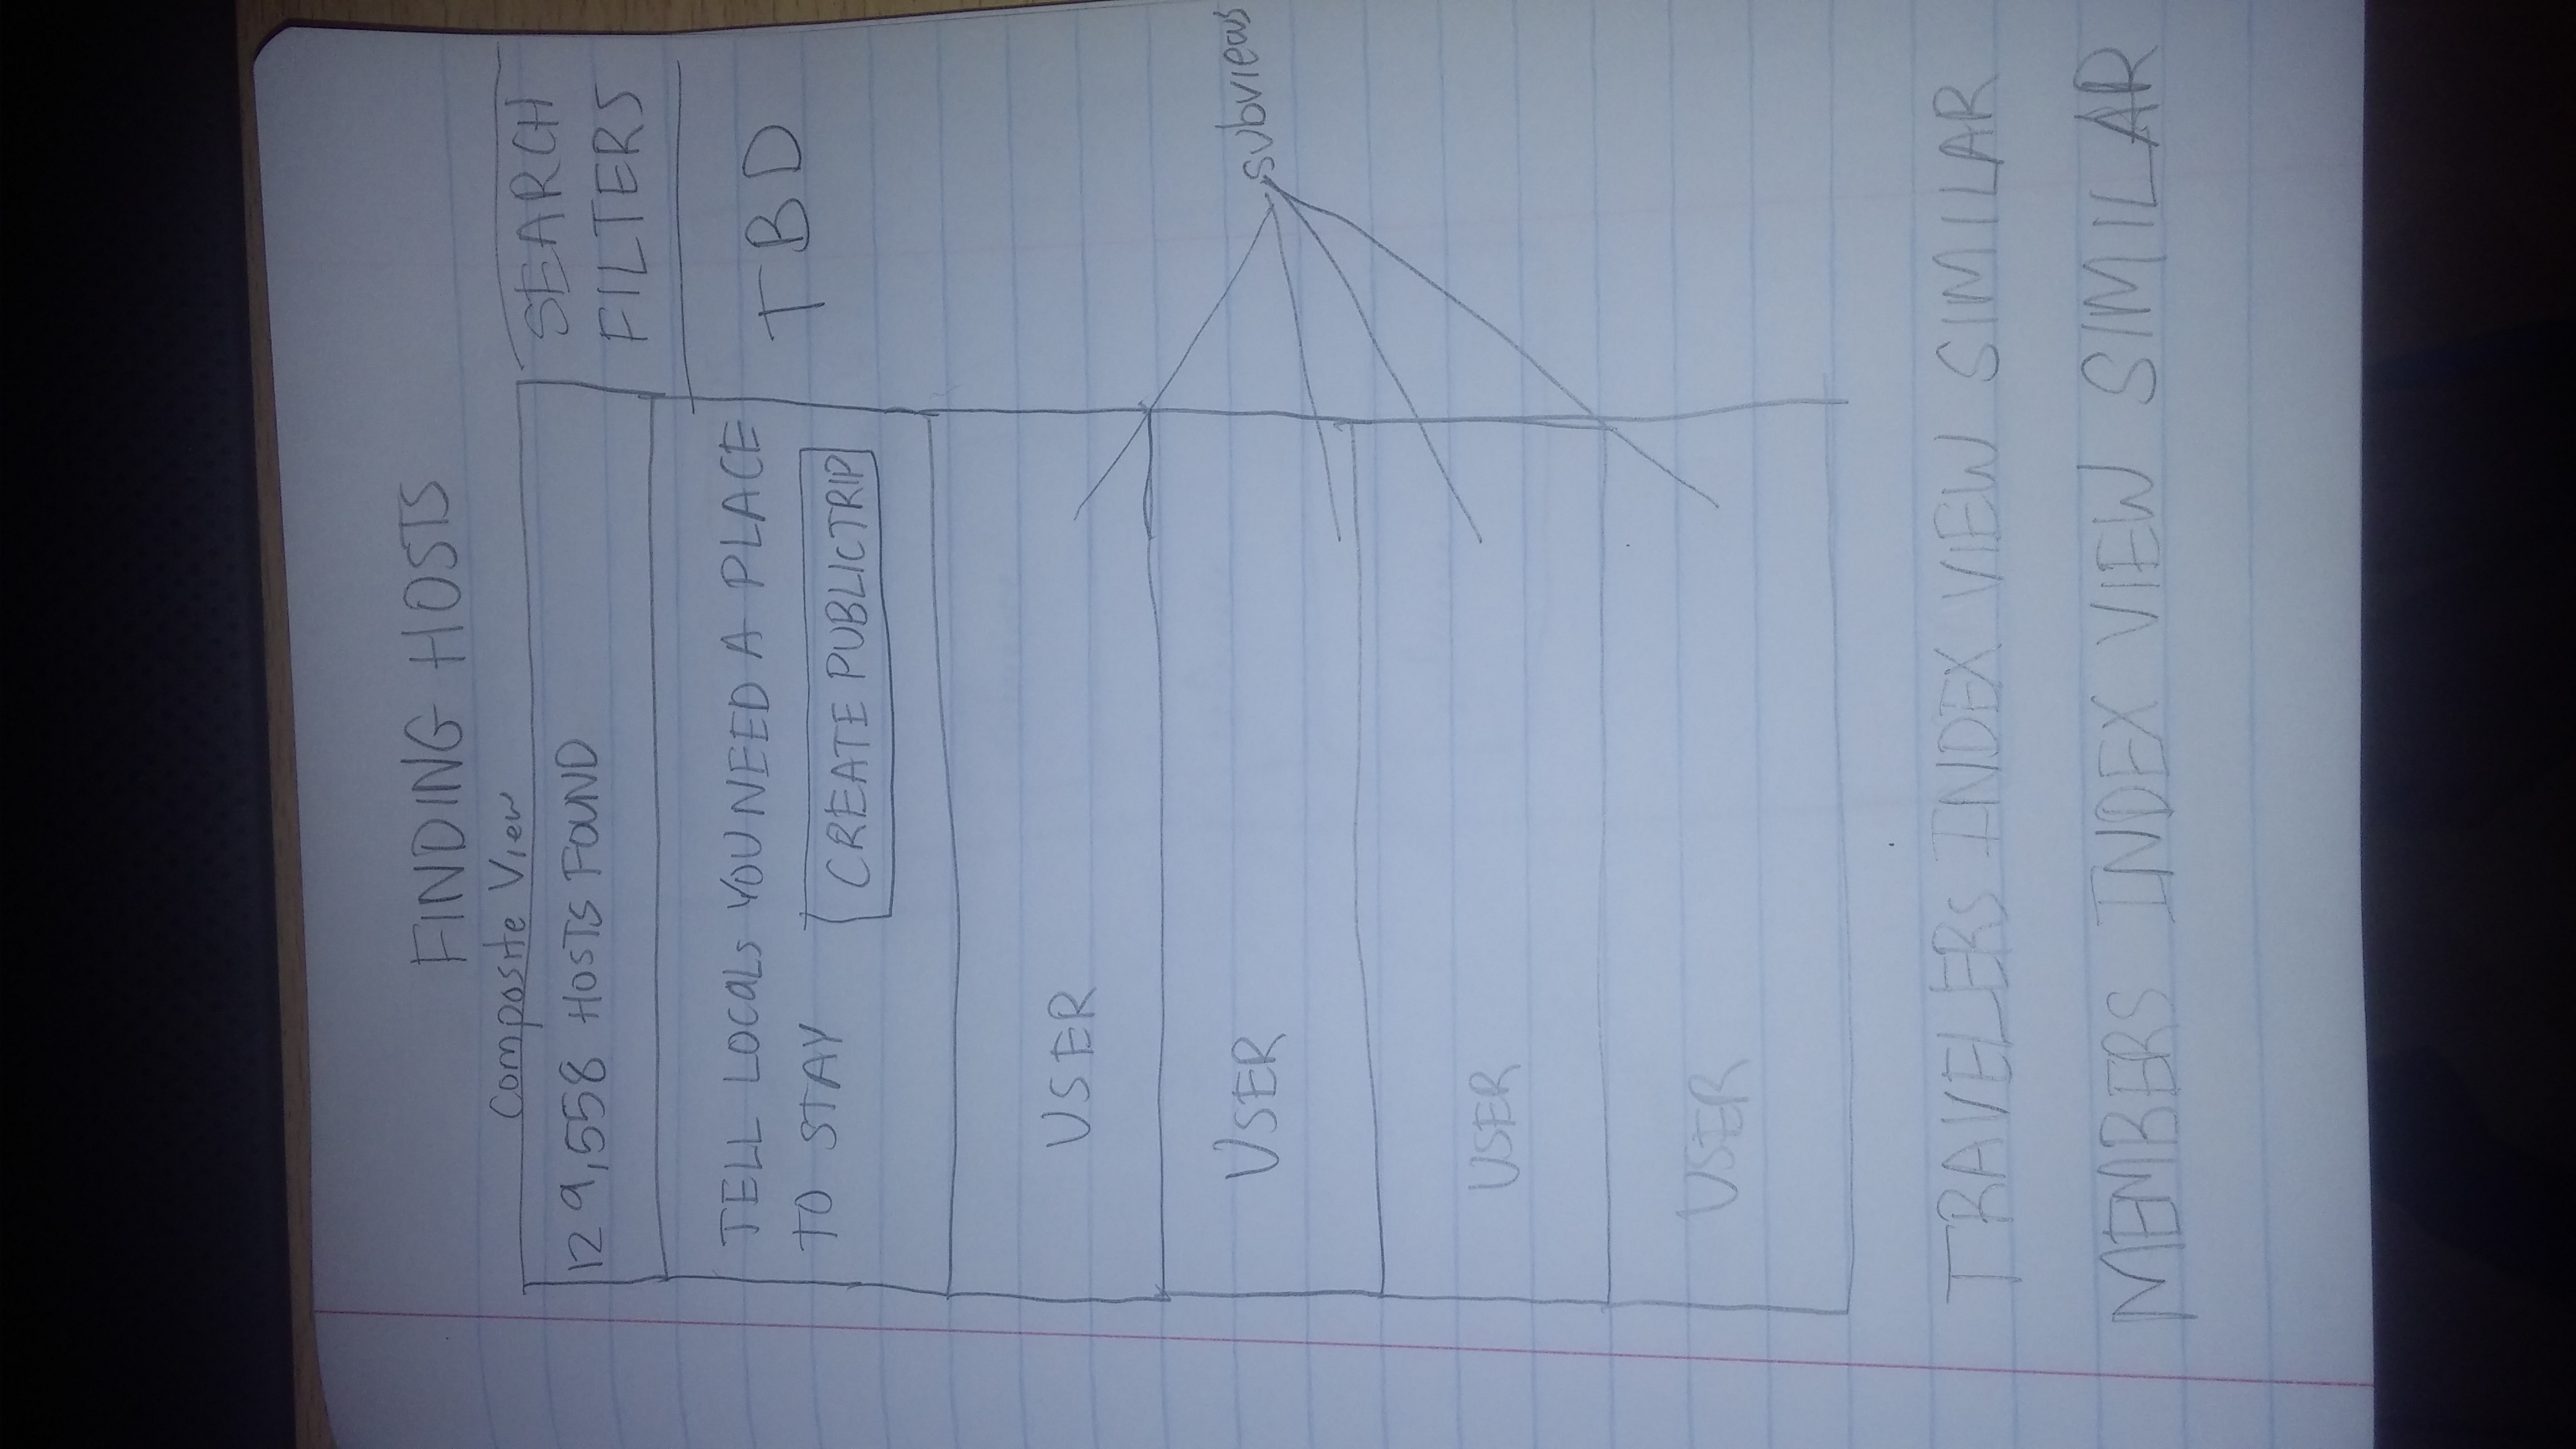 FINDING HOSTS
Composite View
129,558 HOSTS FOUND
SEARCH
FILTERS
TELL LOCALS YOU NEED A PLACE
TO STAY
CREATE PUBLIC TRIP
TBD
USER
USER
subviews
USER
USER
TRAVELERS INDEX VIEW SIMILAR
MEMBERS INDEX VIEW SIMILAR